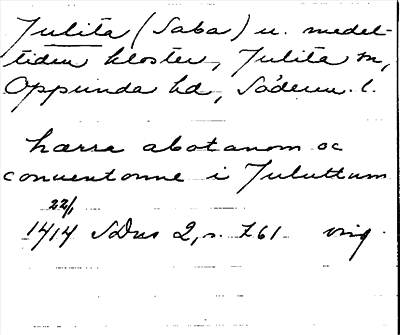 Julita (Saba) u. medel-
tiden kloster, Julita sn,
Oppunda hd, Söderm. l.
hærra abotanom oc
conuentonne i Juluttum
22/1
1414 SDns 2, s. 761 orig.